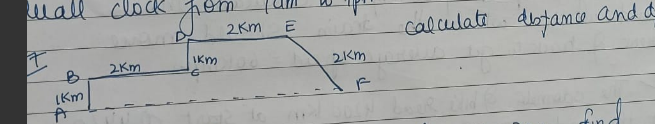 wall clock from 1am to 1pm
calculate distance and d
D 2Km E
B 2Km C 1Km 2Km
1Km
A F
find